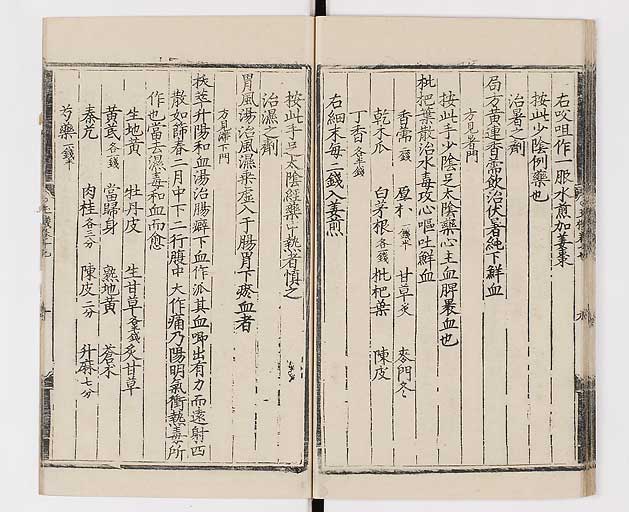 右㕮咀作一服水煎加薑棗
按此少陰例藥也
治暑之劑
局方黃連香薷飲治伏暑純下鮮血
方見暑門
按此手少陰足太陰藥心主血脾裹血也
枇杷葉散治水毒攻心嘔吐鮮血
香薷二錢 厚朴 甘草炙 麥門冬
乾木瓜 白茅根各一錢 枇杷葉 陳皮
丁香各半錢
右細末每二錢入姜煎
按此手足太陰經藥中熱者慎之
治濕之劑
胃風湯治風濕乘虛入于腸胃下瘀血者
方見瀉下門
拔萃升陽和血湯治腸癖下血作派其血唧出有力而遠射四
散如篩春二月中下二行腹中大作痛乃陽明氣衝熱毒所
作也當去濕毒和血而愈
生地黃 牡丹皮 生甘草各半錢 炙甘草
黃芪各一錢 當歸身 熟地黃 蒼朮
秦艽 肉桂各三分 陳皮二分 升麻七分
芍藥一錢半